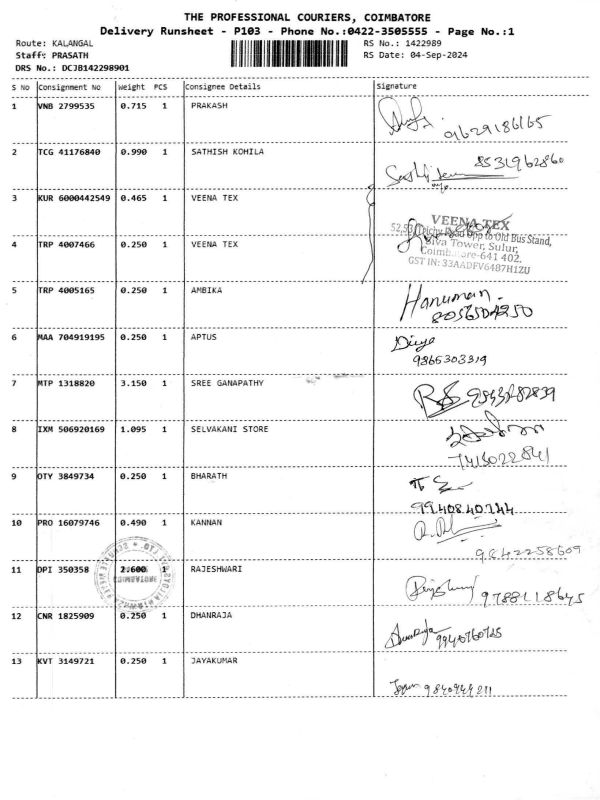 THE PROFESSIONAL COURIERS, COIMBATORE
Delivery Runsheet - P103 - Phone No.:0422-3505555 - Page No.:1
Route: KALANGAL RS No.: 1422989
Staff: PRASATH RS Date: 04-Sep-2024
DRS No.: DCJB142298901
S No Consignment No Weight PCS Consignee Details Signature
1 VNB 2799535 0.715 1 PRAKASH
2 TCG 41176840 0.990 1 SATHISH KOHILA
8531962860
3 KUR 6000442549 0.465 1 VEENA TEX
VEENA TEX
52,53, Trichy Road Opp to Old Bus Stand,
Siva Tower, Sulur,
Coimbatore-641 402.
GST IN: 33AADFV6487H1ZU
4 TRP 4007466 0.250 1 VEENA TEX
5 TRP 4005165 0.250 1 AMBIKA
Hanuman.
8056504250
6 MAA 704919195 0.250 1 APTUS
Divya
9865303319
7 MTP 1318820 3.150 1 SREE GANAPATHY
8 IXM 506920169 1.095 1 SELVAKANI STORE
9 OTY 3849734 0.250 1 BHARATH
9940840744
10 PRO 16079746 0.490 1 KANNAN
9842258609
11 DPI 350358 2.600 1 RAJESHWARI
9788118645
12 CNR 1825909 0.250 1 DHANRAJA
9940760765
13 KVT 3149721 0.250 1 JAYAKUMAR